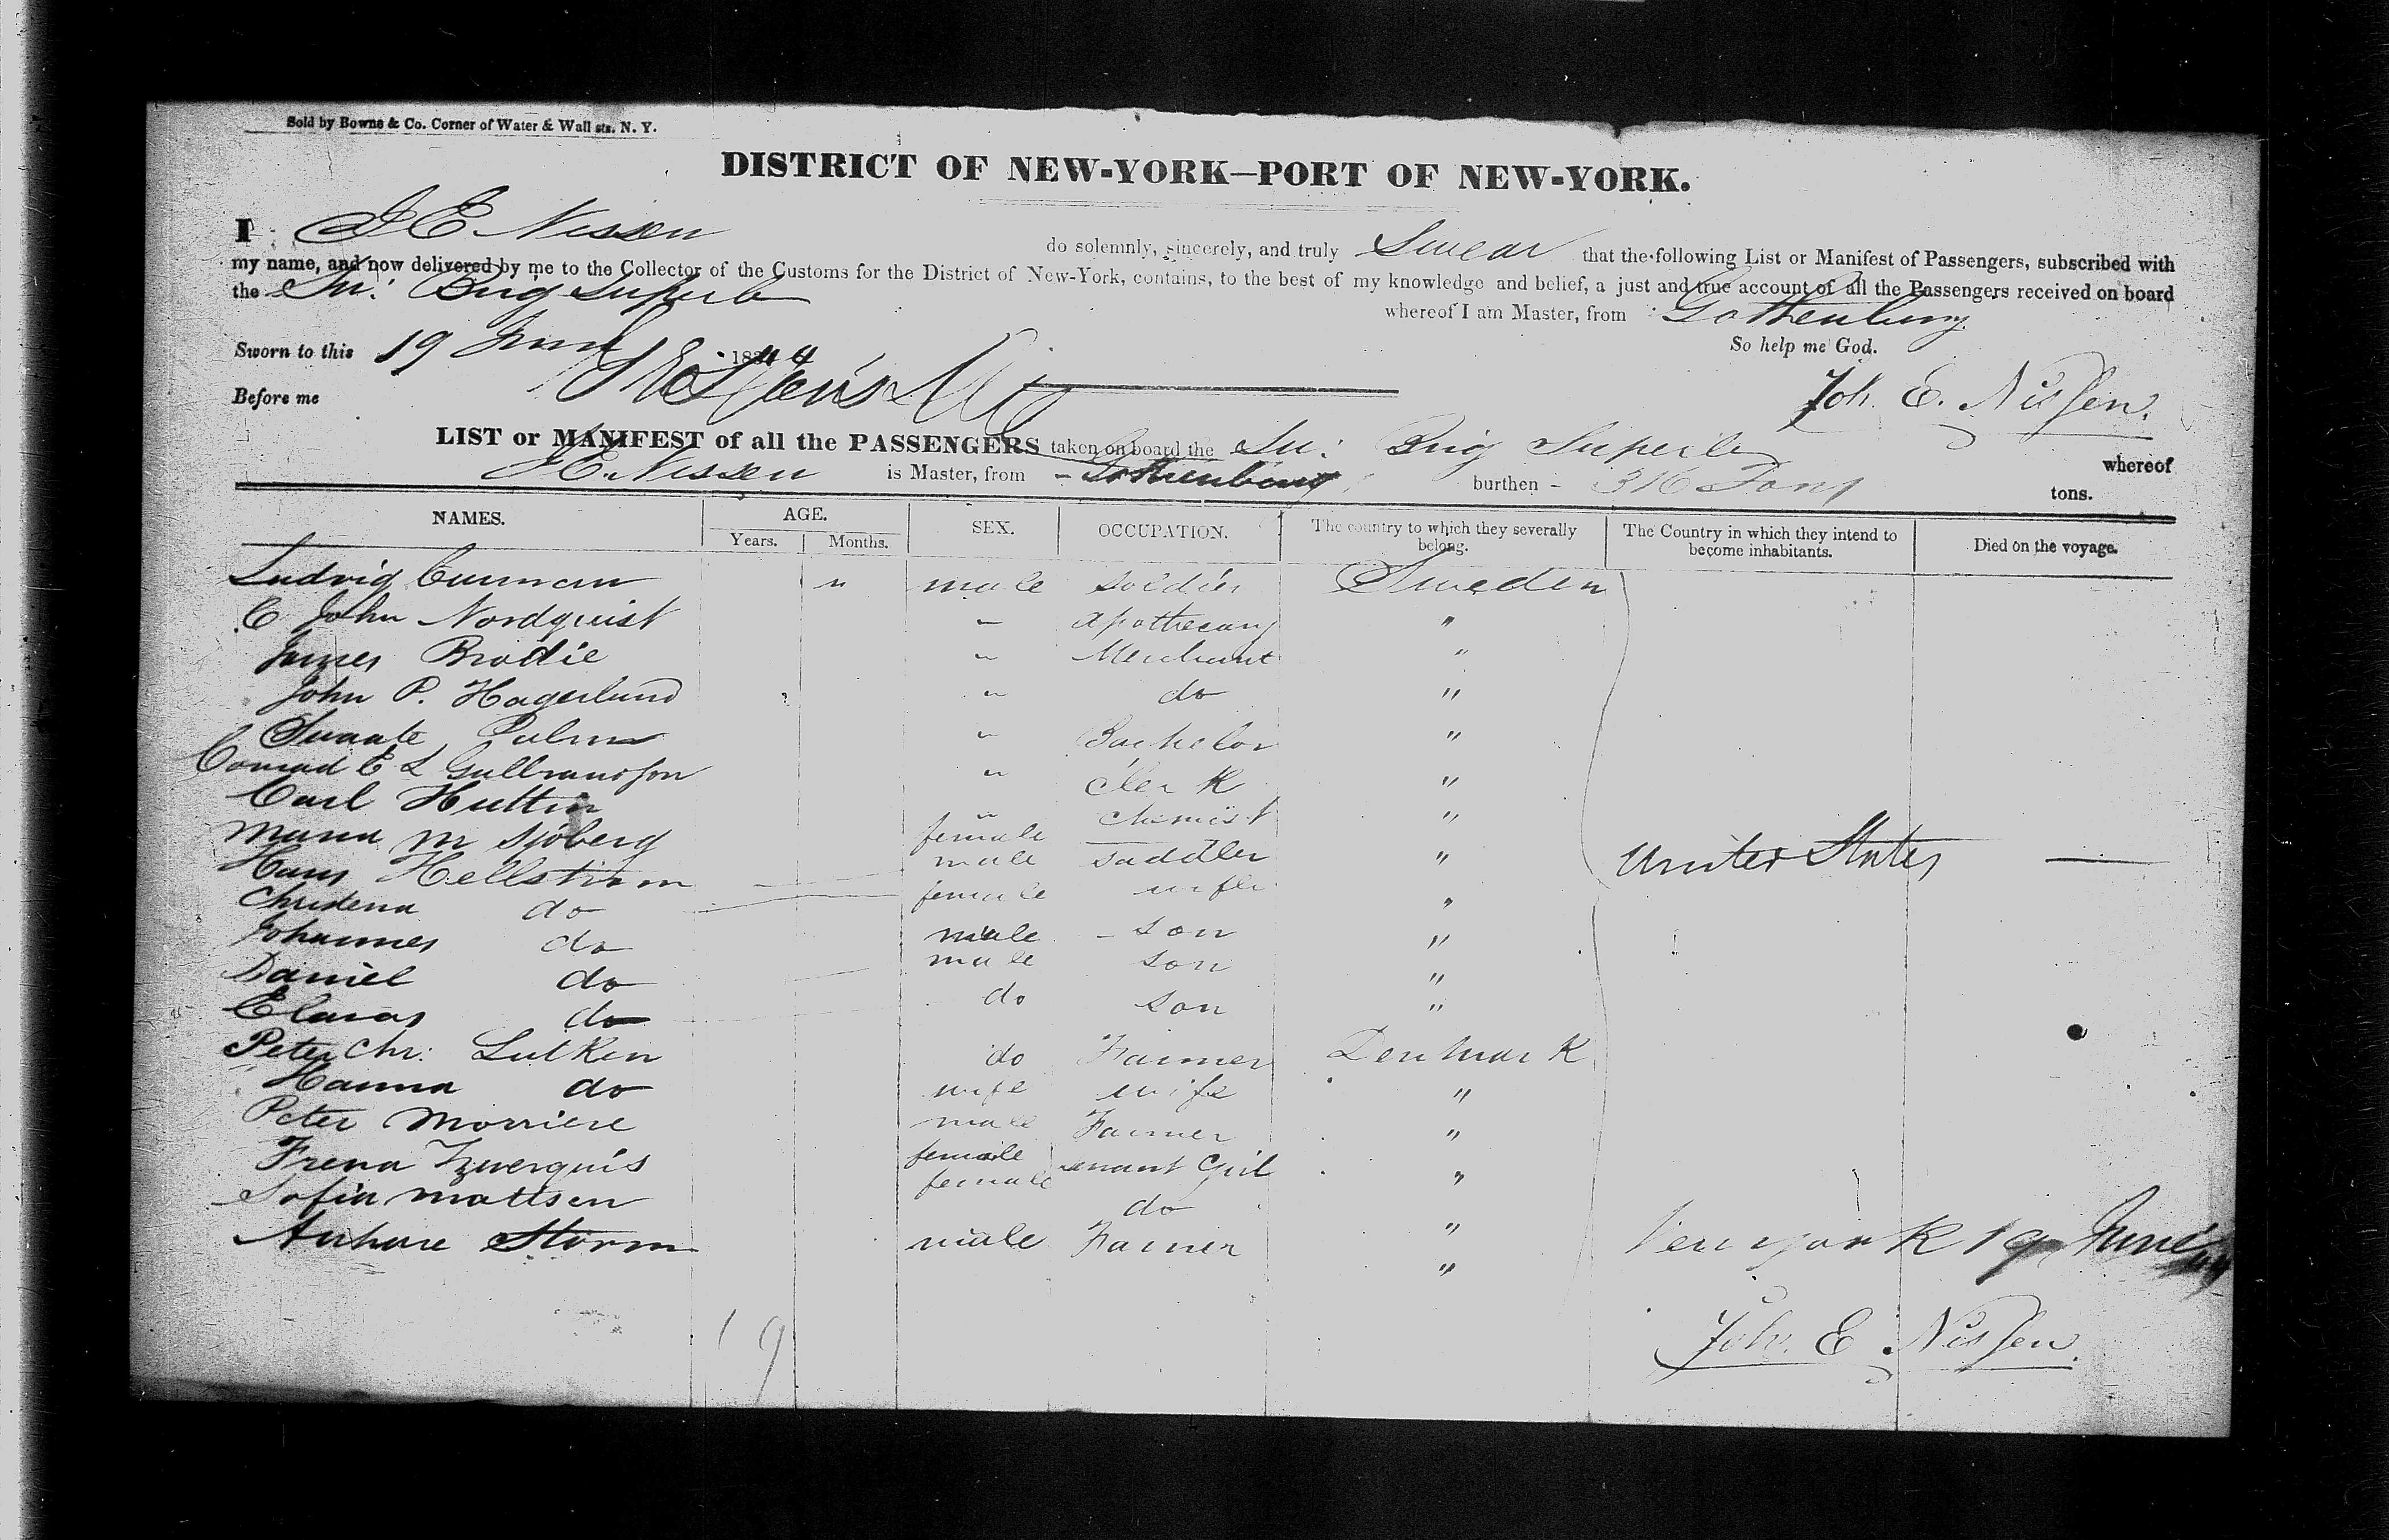 Sold by Bowne & Co. Corner of Water & Wall sts. N. Y.
DISTRICT OF NEW-YORK—PORT OF NEW-YORK.
I J E Nissen do solemnly, sincerely, and truly Swear that the following List or Manifest of Passengers, subscribed with
my name, and now delivered by me to the Collector of the Customs for the District of New-York, contains, to the best of my knowledge and belief, a just and true account of all the Passengers received on board
the Sw: Brig Superb whereof I am Master, from Gothenburg
So help me God.
Sworn to this 19 June 1844
Before me
Joh. E. Nissen.
LIST or MANIFEST of all the PASSENGERS taken on board the Sw: Brig Superb whereof
J E Nissen is Master, from Gothenburg burthen - 316 Tons tons.
NAMES. AGE. SEX. OCCUPATION. The country to which they severally belong. The Country in which they intend to become inhabitants. Died on the voyage.
Years. Months.
Ludvig " male soldier Sweden
C John Nordquist " apothecary "
James Brodie " Merchant "
John P. Hagerlund " do "
Svante " Bachelor "
Conrad E L Gullbransson " Clerk "
Carl Huttin " Chemist "
M Sjoberg female —
Hans Hellstrom male saddler "
Christena do female wife "
Johannes do male - son "
Daniel do male son "
do do son "
Peter Chr: Lutken do Farmer Denmark
Hanna do wife wife "
Peter Morriere male Farmer "
female Girl "
Sofia Mattsen female do "
Storm male Farmer "
United States —
New york 19 June 44
19
Joh. E Nissen.